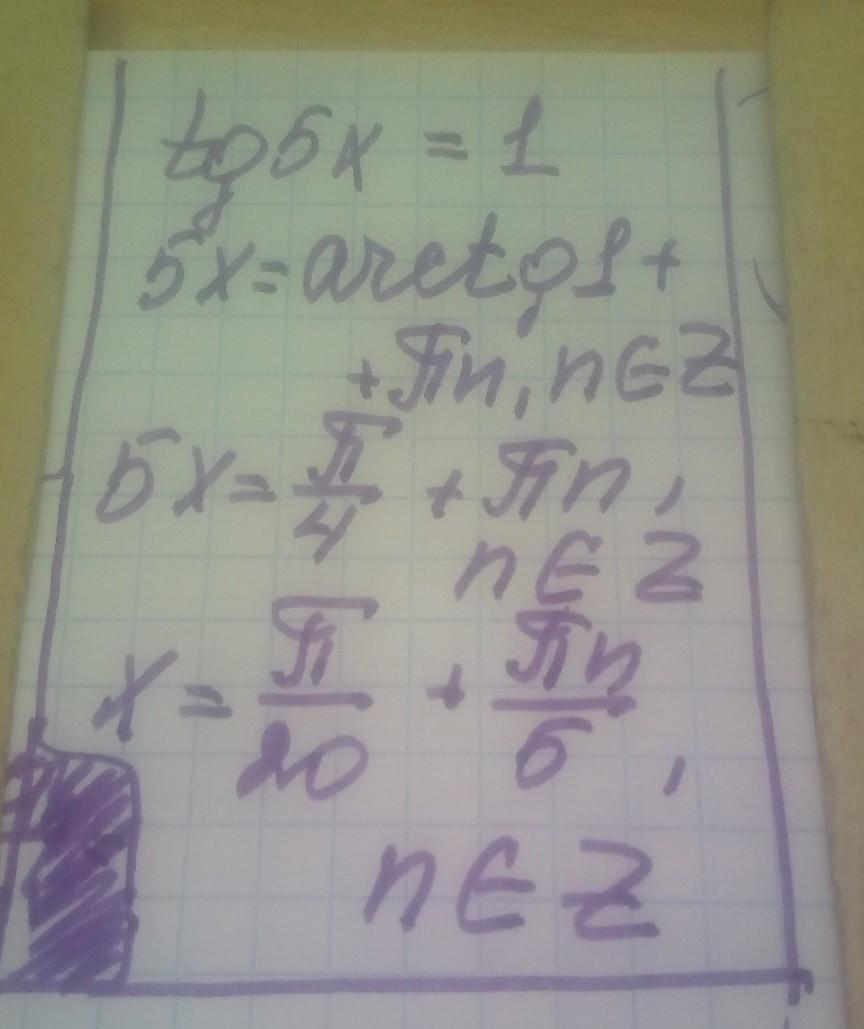 tg5x = 1
5x = arctg1 +
+ πn, n ∈ Z
5x = π/4 + πn,
n ∈ Z
x = π/20 + πn/5,
n ∈ Z